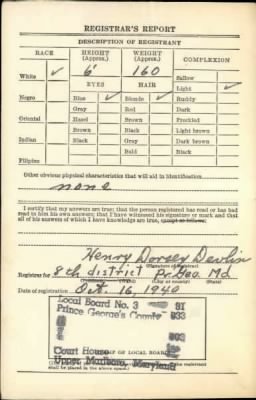 REGISTRAR'S REPORT
DESCRIPTION OF REGISTRANT
RACE HEIGHT (Approx.) WEIGHT (Approx.) COMPLEXION
White ✓ 6' 160 Sallow
EYES HAIR Light ✓
Negro Blue ✓ Blonde ✓ Ruddy
Gray Red Dark
Oriental Hazel Brown Freckled
Brown Black Light brown
Indian Black Gray Dark brown
Bald Black
Filipino
Other obvious physical characteristics that will aid in identification
none
I certify that my answers are true; that the person registered has read or has had
read to him his own answers; that I have witnessed his signature or mark and that
all of his answers of which I have knowledge are true, except as follows:
Henry Dorsey Devlin
(Signature of registrar)
Registrar for 8th district Pr. Geo. Md
(City or county) (State)
Date of registration Oct. 16, 1940
Local Board No. 3 81
Prince George's County 033
003
Court House
Upper Marlboro, Maryland
OF LOCAL BOARD
shall be placed in the above space.)